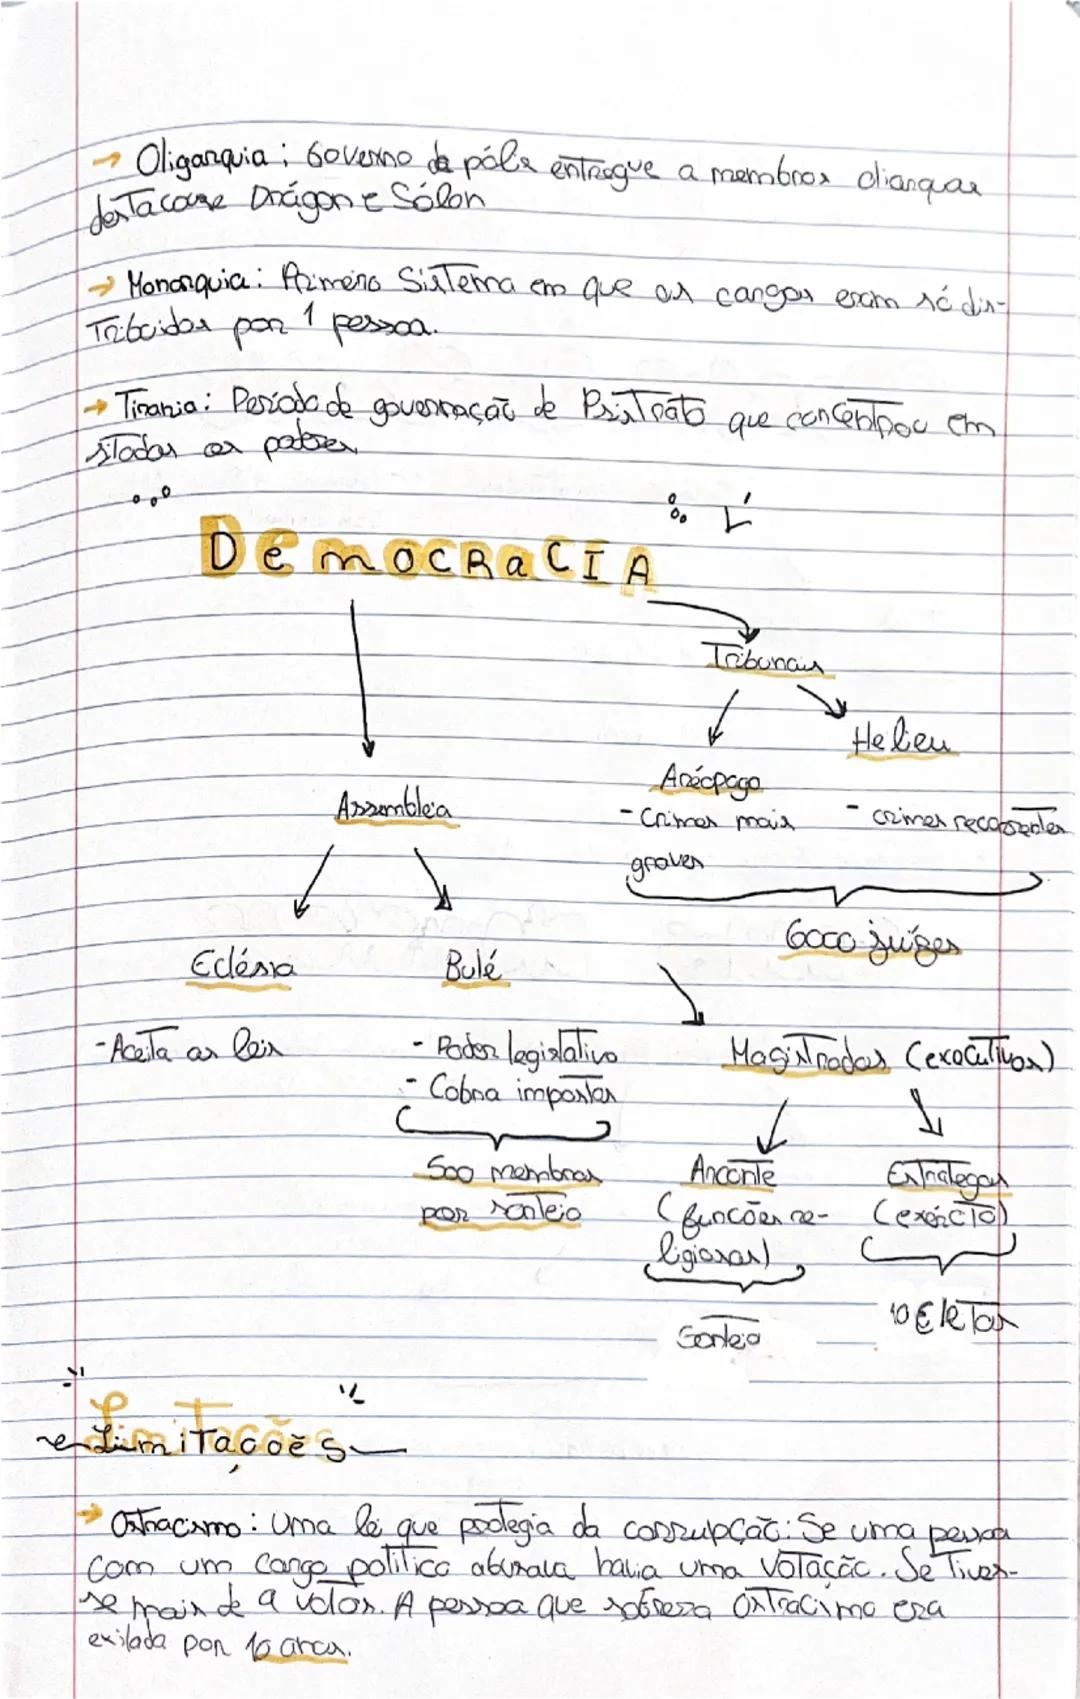 → Oligarquia: Governo da pólis entregue a membros
destacavse Drágon e Sólon
→ Monarquia: Primeiro Sistema em que os cargos eram só dis-
Tribuidos por 1 pessoa.
→ Tirania: Periodo de governação de que concentrou em
si Todos os
DemocRaCIA
Tribunais
Helieu
Areópago
Assembleia
- Crimes mais
graves
- crimes
6000 juízes
Eclésia
Bulé
- Aceita as leis
- Poder legislativo
- Cobra impostos
Magistrados (executivos)
500 membros
por sorteio
Arconte
(funcões re-
ligiosas)
Estrategas
(exército)
10 Eleitos
Sorteio
Limitações
→ Ostracismo: Uma lei que protegia da corrupção: Se uma pessoa
com um cargo politico abusava havia uma votação. Se Tives-
se mais de votos. A pessoa que Ostracismo era
exilada por 10 anos.